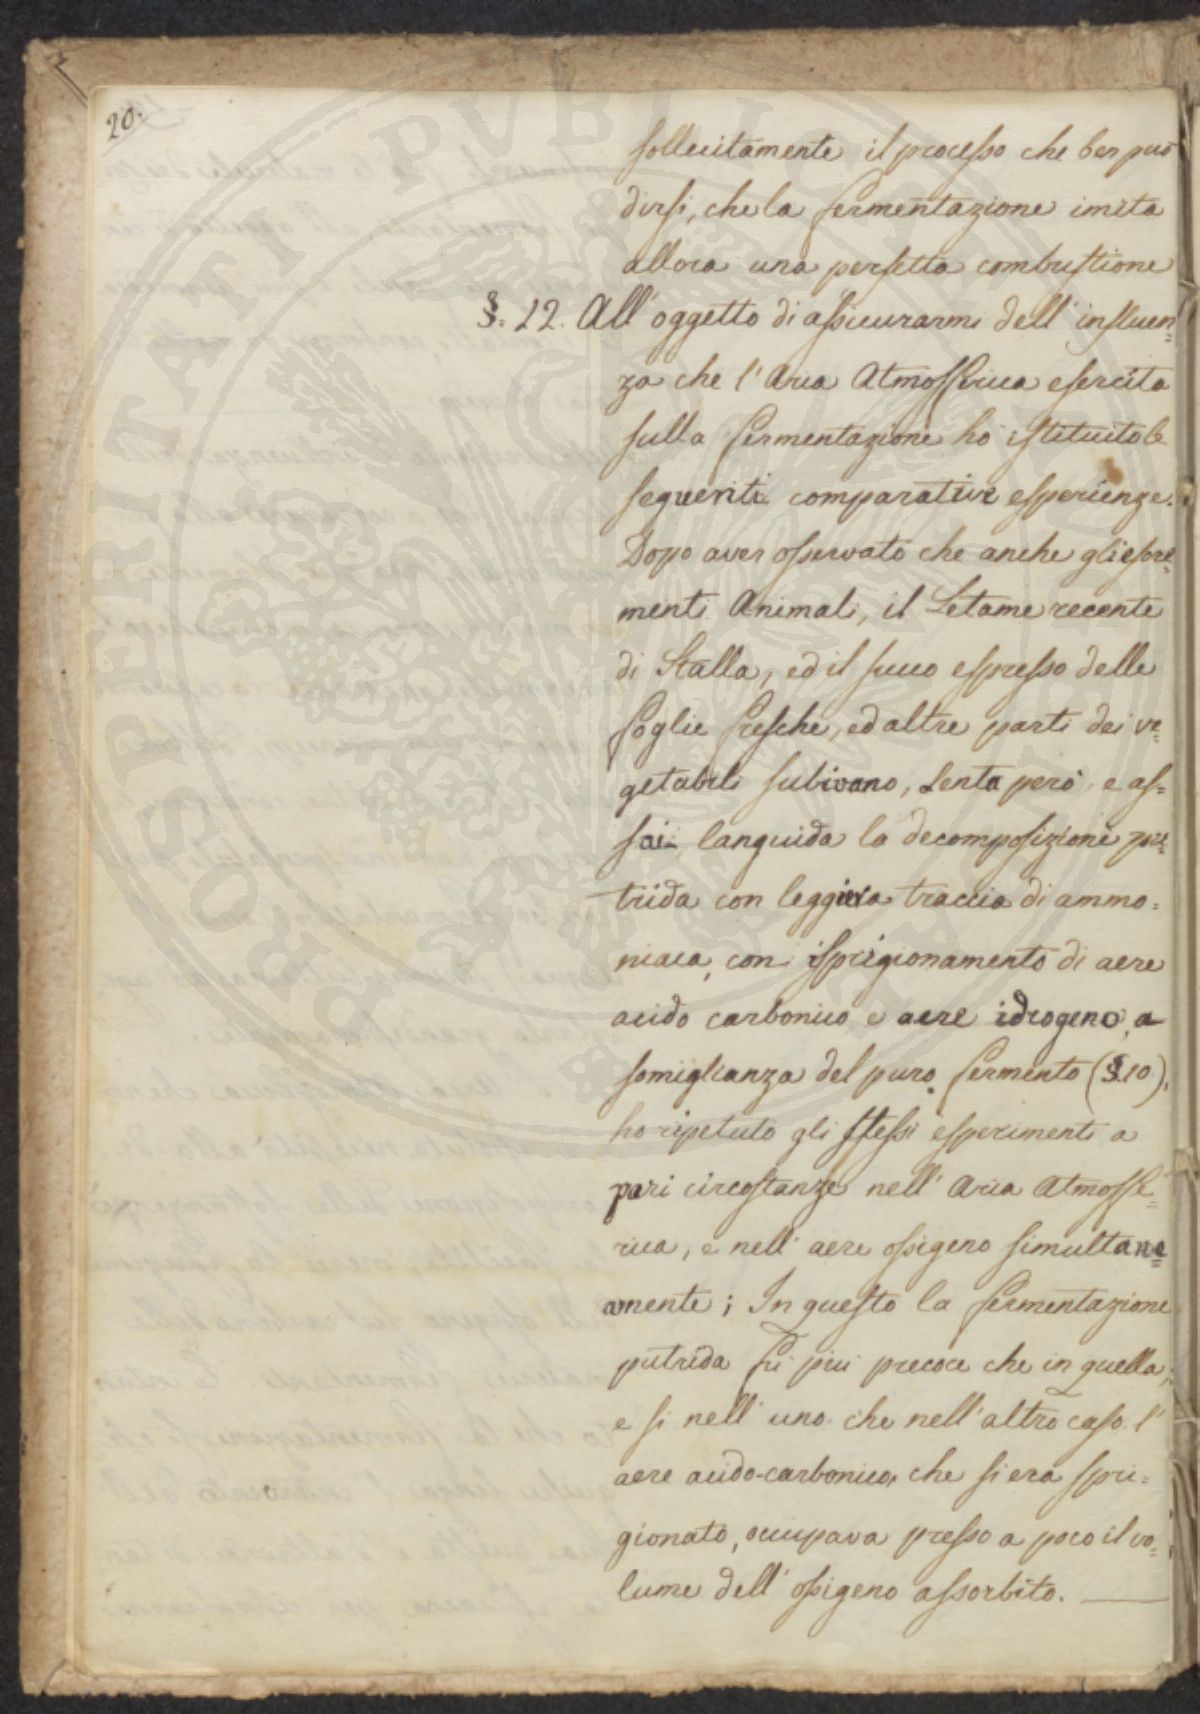 20.
sollecitamente il processo che ben può
dirsi, che la fermentazione imita
allora una perfetta combustione
§. 12. All' oggetto di assicurarmi dell' influen=
za che l' Aria Atmosferica esercita
sulla fermentazione ho istituito le
seguenti comparative esperienze.
Dopo aver osservato che anche gli escre=
menti Animali, il Letame recente
di Stalla, ed il succo espresso delle
foglie fresche, ed altre parti dei ve=
getabili subivano, Lenta però, e as=
sai languida la decomposizione pu=
trida con leggiera traccia di ammo=
niaca, con isprigionamento di aere
acido carbonico e aere idrogeno, a
somiglianza del puro fermento (§.10),
ho ripetuto gli stessi esperimenti a
pari circostanze nell' Aria Atmosfe=
rica, e nell' aere ossigeno simultane=
amente; In questo la fermentazione
putrida fu più precoce che in quella;
e si nell' uno che nell' altro caso l'
aere acido-carbonico, che si era spri=
gionato, occupava presso a poco il vo=
lume dell' ossigeno assorbito.
PROSPERITATI PVBLICAE